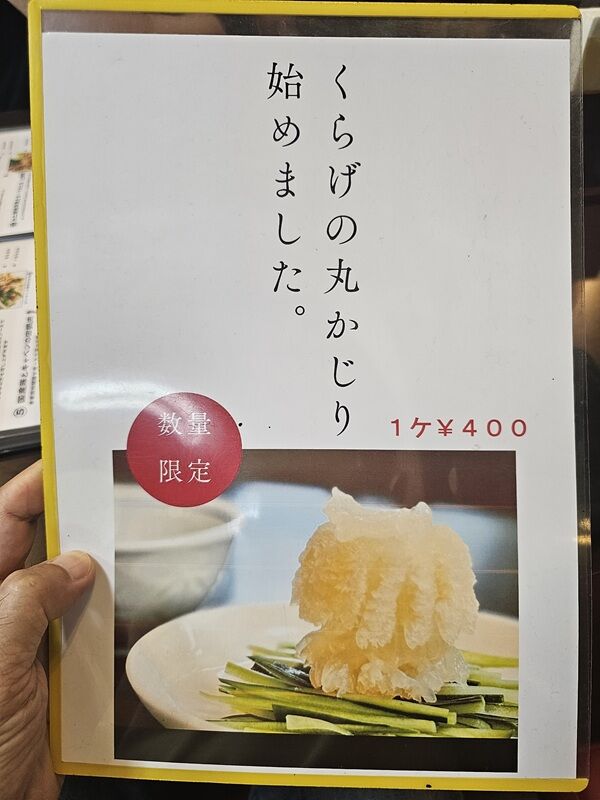 くらげの丸かじり
始めました。
1ケ¥400
数量
限定